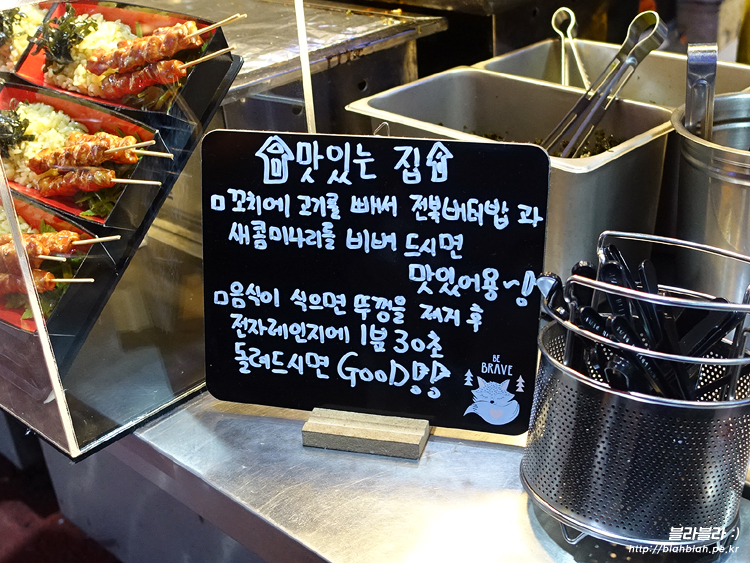 맛있는 집
□꼬치에 고기를 빼서 전복버터밥 과
새콤미나리를 비벼 드시면
맛있어용~!
□음식이 식으면 뚜껑을 제거 후
전자레인지에 1분 30초
돌려드시면 GOOD!!
BE
BRAVE
블라블라 :)
http://blahblah.pe.kr